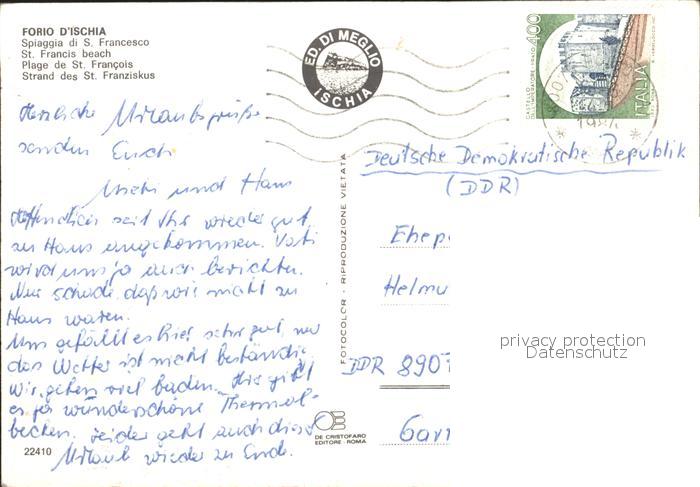 FORIO D'ISCHIA
Spiaggia di S. Francesco
St. Francis beach
Plage de St. François
Strand des St. Franziskus
ED. DI MEGLIO
ISCHIA
400
CASTELLO
ITALIA
Herzliche Urlaubsgrüße
senden Euch
und Hans
Hoffentlich seid Ihr wieder gut
zu Haus angekommen. Vati
wird uns ja auch berichten.
Nur schade, daß wir nicht zu
Haus waren.
Uns gefällt es hier sehr gut, nur
das Wetter ist nicht beständig
Wir gehen viel baden. Hier gibt
es ja wunderschöne Thermal-
becken. Leider geht auch dieser
Urlaub wieder zu Ende.
22410
FOTOCOLOR - RIPRODUZIONE VIETATA
DE CRISTOFARO
EDITORE - ROMA
Deutsche Demokratische Republik
(DDR)
Ehep
Helmu
DDR 890
Gar
privacy protection
Datenschutz